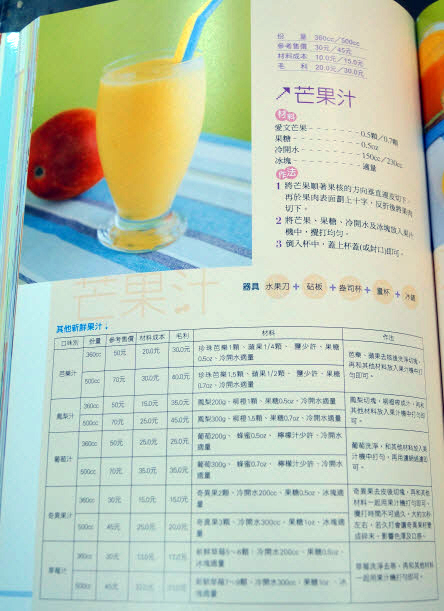 份 量 360cc／500cc
參考售價 30元／45元
材料成本 10.0元／15.0元
毛 利 20.0元／30.0元
芒果汁
材料
愛文芒果 0.5顆／0.7顆
果糖 0.5oz
冷開水 150cc／230cc
冰塊 適量
作法
1 將芒果順著果核的方向垂直邊皮切下，
再於果肉表面劃上十字，反折後將果肉
切下。
2 將芒果、果糖、冷開水及冰塊放入果汁
機中，攪打均勻。
3 倒入杯中，蓋上杯蓋(或封口)即可。
芒果汁
器具 水果刀＋砧板＋盎司杯＋量杯＋冰鏟
其他新鮮果汁
口味別 份量 參考售價 材料成本 毛利 材料 作法
芭樂汁
360cc 50元 20.0元 30.0元 珍珠芭樂1顆、蘋果1/4顆、鹽少許、果糖
0.5oz、冷開水適量
500cc 70元 30.0元 40.0元 珍珠芭樂1.5顆、蘋果1/2顆、鹽少許、果糖
0.7oz、冷開水適量
芭樂、蘋果去核後洗淨切塊，
再和其他材料放入果汁機中打
勻即可。
鳳梨汁
360cc 50元 15.0元 35.0元 鳳梨200g、柳橙1顆、果糖0.5oz、冷開水適量
500cc 70元 25.0元 45.0元 鳳梨300g、柳橙1.5顆、果糖0.7oz、冷開水適量
鳳梨切塊，柳橙榨成汁，再和
其他材料放入果汁機中打勻即
可。
葡萄汁
360cc 50元 25.0元 25.0元 葡萄200g、蜂蜜0.5oz、檸檬汁少許、冷開水
適量
500cc 70元 35.0元 35.0元 葡萄300g、蜂蜜0.7oz、檸檬汁少許、冷開水
適量
葡萄洗淨，和其他材料放入果
汁機中打勻，再用濾網過濾即
可。
奇異果汁
360cc 30元 15.0元 15.0元 奇異果2顆、冷開水200cc、果糖0.5oz、冰塊適
量
500cc 45元 25.0元 20.0元 奇異果3顆、冷開水300cc、果糖1oz、冰塊適
量
奇異果去皮後切塊，再和其他
材料一起用果汁機打勻即可。
攪打時間不可過久，大約3次
左右，若久打會讓奇異果籽變
成碎末，影響色澤及口感。
草莓汁
360cc 30元 13.0元 17.0元 新鮮草莓5～6顆、冷開水200cc、果糖0.5oz、
冰塊適量
500cc 45元 新鮮草莓7～9顆、冷開水300cc、果糖1oz、冰
塊適量
草莓洗淨去蒂，再和其他材料
一起用果汁機打勻即可。